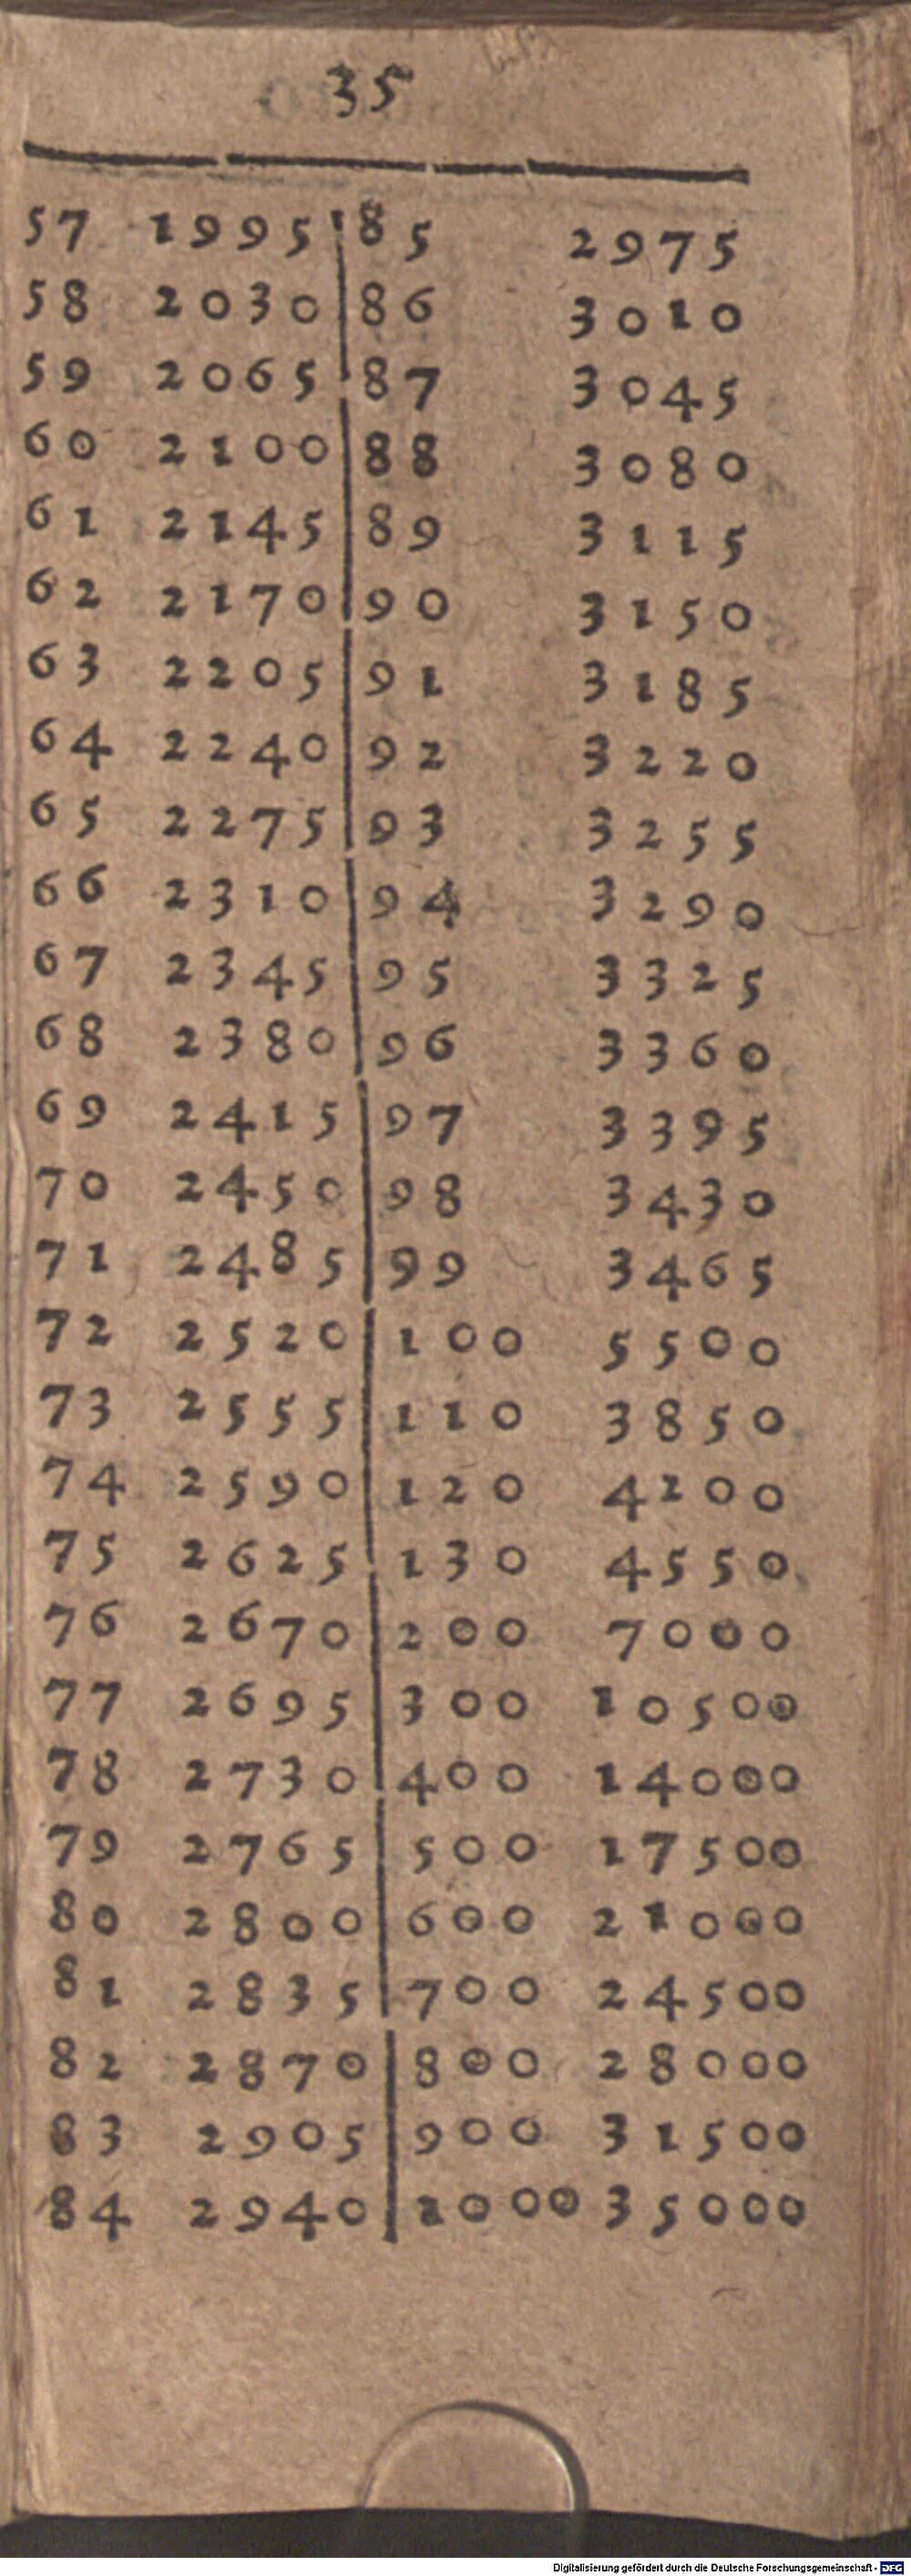 35
57 1995 85 2975
58 2030 86 3010
59 2065 87 3045
60 2100 88 3080
61 2145 89 3115
62 2170 90 3150
63 2205 91 3185
64 2240 92 3220
65 2275 93 3255
66 2310 94 3290
67 2345 95 3325
68 2380 96 3360
69 2415 97 3395
70 2450 98 3430
71 2485 99 3465
72 2520 100 5500
73 2555 110 3850
74 2590 120 4200
75 2625 130 4550
76 2670 200 7000
77 2695 300 10500
78 2730 400 14000
79 2765 500 17500
80 2800 600 21000
81 2835 700 24500
82 2870 800 28000
83 2905 900 31500
84 2940 1000 35000
Digitalisierung gefördert durch die Deutsche Forschungsgemeinschaft - DFG